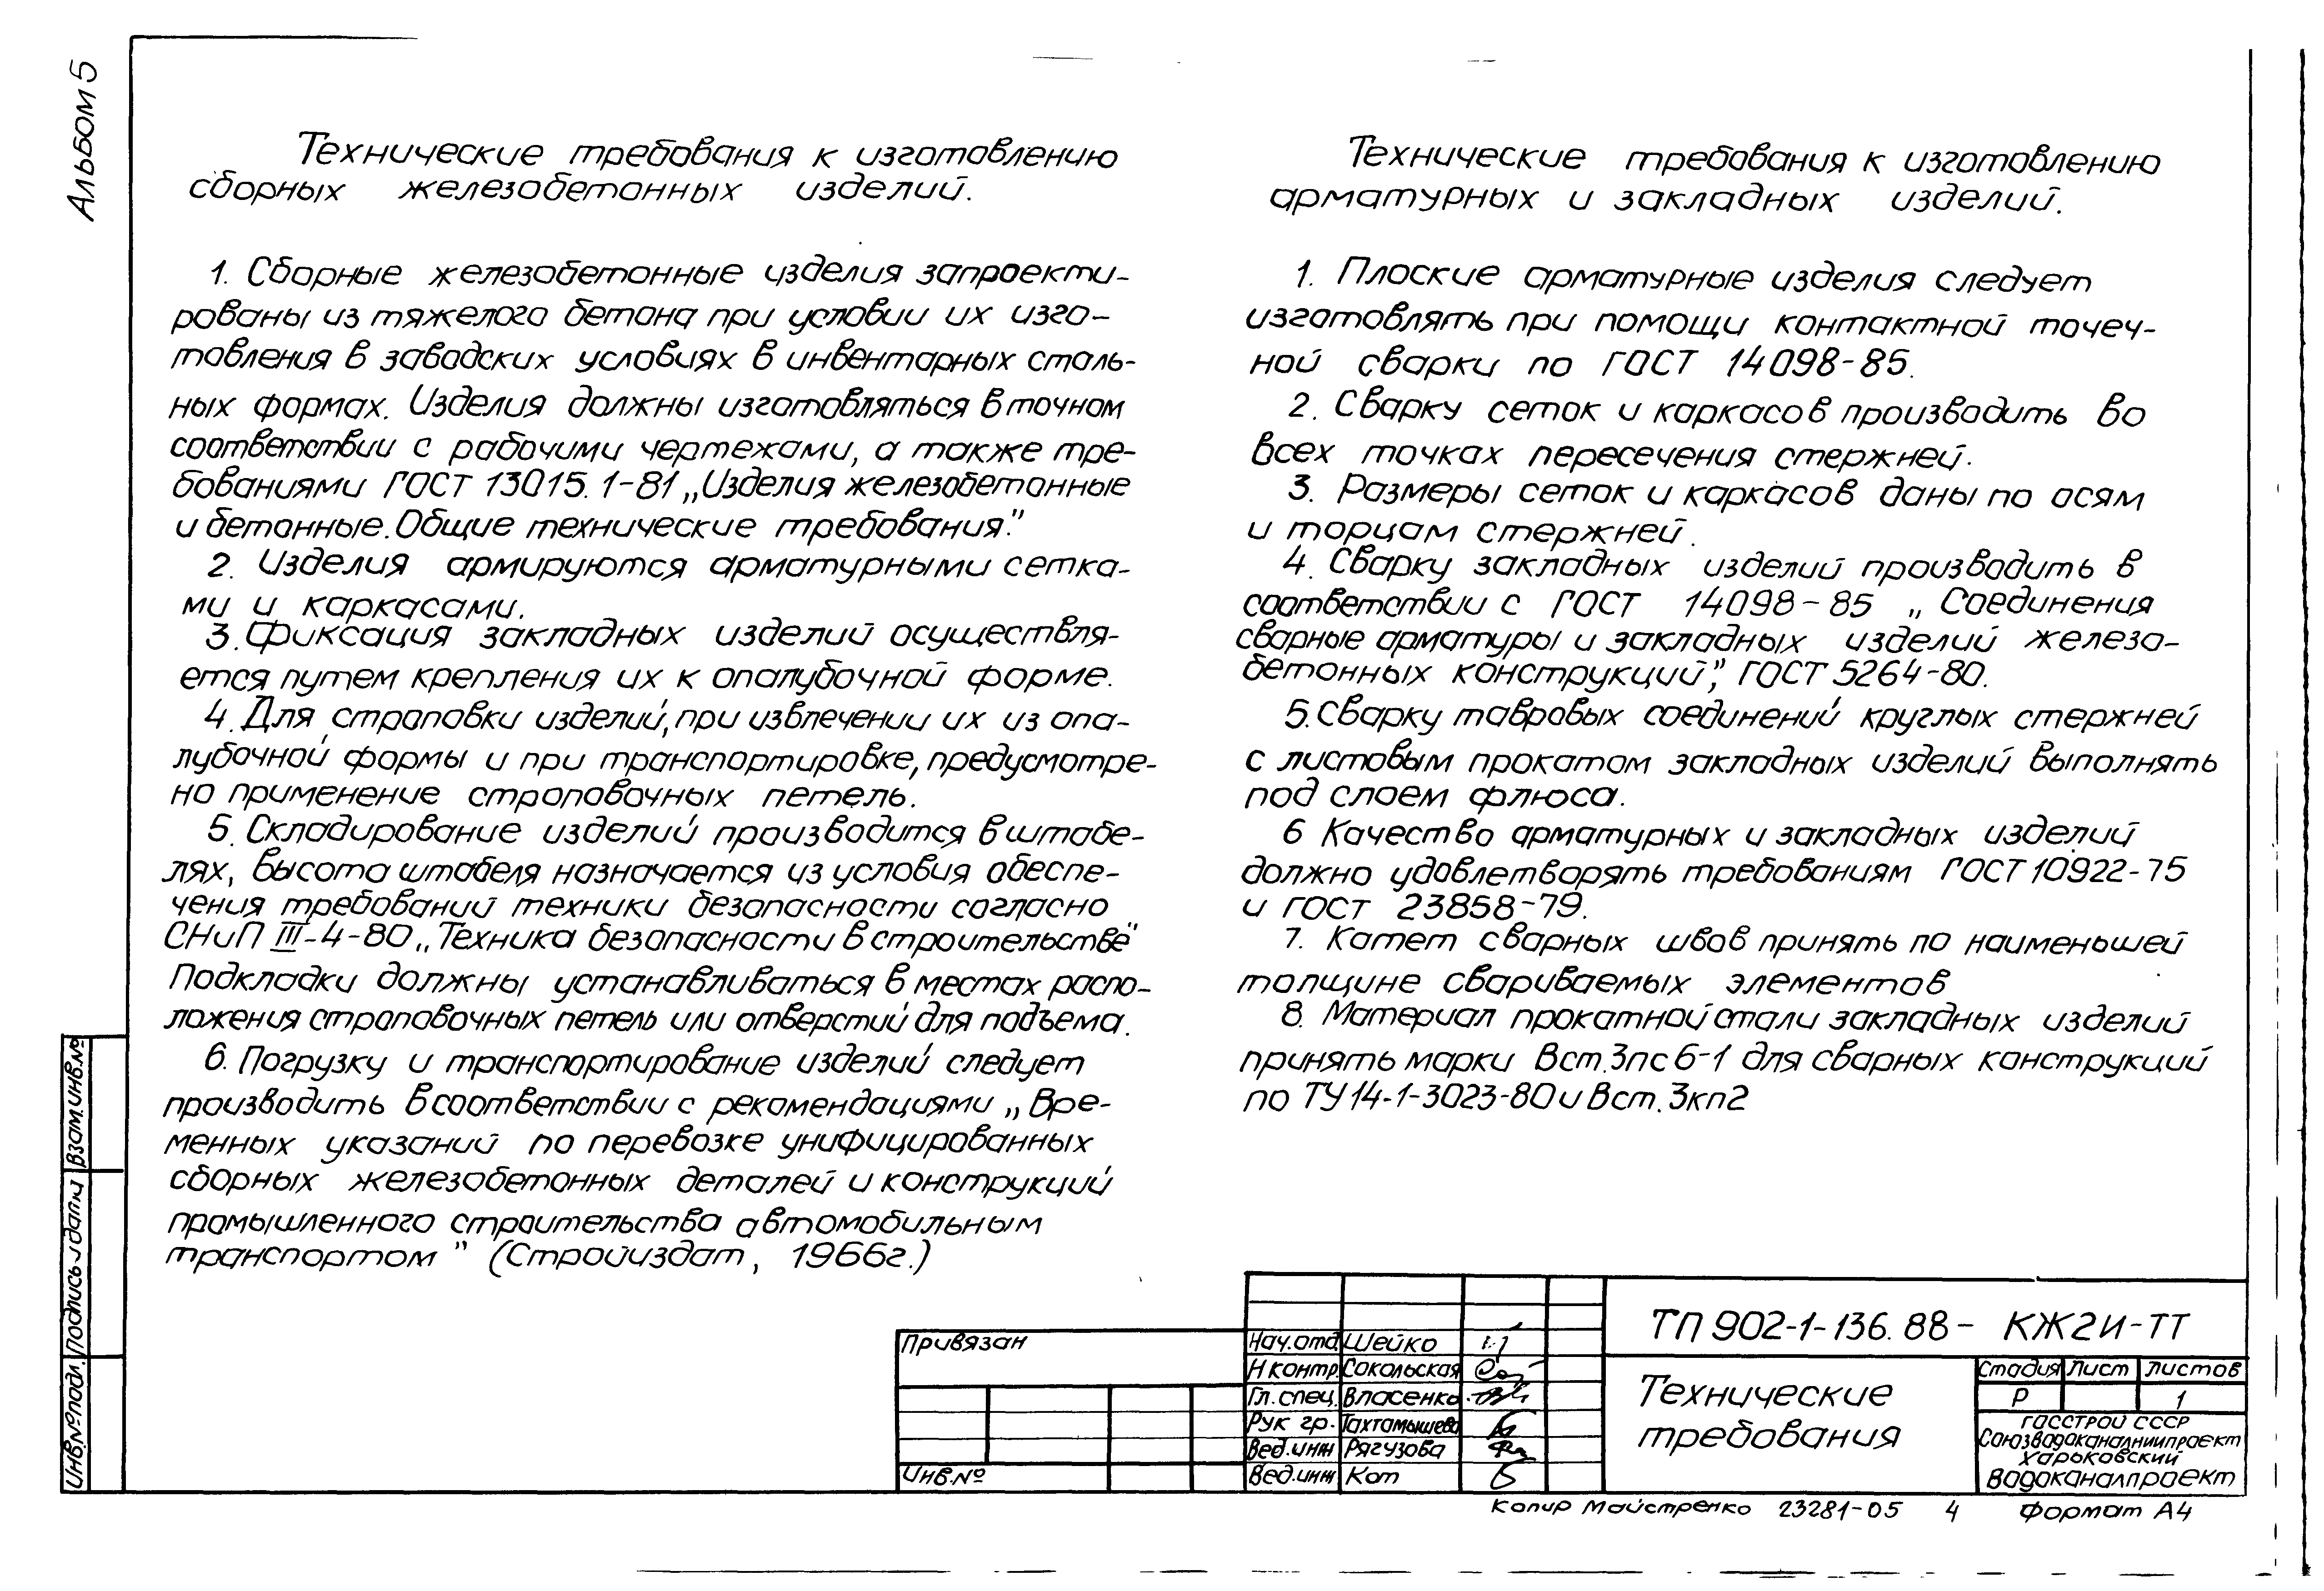 Альбом 5
Технические требования к изготовлению
сборных железобетонных изделий.
1. Сборные железобетонные изделия запроекти-
рованы из тяжелого бетона при условии их изго-
товления в заводских условиях в инвентарных сталь-
ных формах. Изделия должны изготовляться в точном
соответствии с рабочими чертежами, а также тре-
бованиями ГОСТ 13015.1-81 „Изделия железобетонные
и бетонные. Общие технические требования."
2. Изделия армируются арматурными сетка-
ми и каркасами.
3. Фиксация закладных изделий осуществля-
ется путем крепления их к опалубочной форме.
4. Для строповки изделий, при извлечении их из опа-
лубочной формы и при транспортировке, предусмотре-
но применение строповочных петель.
5. Складирование изделий производится в штабе-
лях, высота штабеля назначается из условия обеспе-
чения требований техники безопасности согласно
СНиП III-4-80 „Техника безопасности в строительстве"
Подкладки должны устанавливаться в местах распо-
ложения строповочных петель или отверстий для подъема.
6. Погрузку и транспортирование изделий следует
производить в соответствии с рекомендациями „Вре-
менных указаний по перевозке унифицированных
сборных железобетонных деталей и конструкций
промышленного строительства автомобильным
транспортом" (Стройиздат, 1966г.)
Технические требования к изготовлению
арматурных и закладных изделий.
1. Плоские арматурные изделия следует
изготовлять при помощи контактной точеч-
ной сварки по ГОСТ 14098-85.
2. Сварку сеток и каркасов производить во
всех точках пересечения стержней.
3. Размеры сеток и каркасов даны по осям
и торцам стержней.
4. Сварку закладных изделий производить в
соответствии с ГОСТ 14098-85 „Соединения
сварные арматуры и закладных изделий железо-
бетонных конструкций", ГОСТ 5264-80.
5. Сварку тавровых соединений круглых стержней
с листовым прокатом закладных изделий выполнять
под слоем флюса.
6 Качество арматурных и закладных изделий
должно удовлетворять требованиям ГОСТ 10922-75
и ГОСТ 23858-79.
7. Катет сварных швов принять по наименьшей
толщине свариваемых элементов
8. Материал прокатной стали закладных изделий
принять марки Вст.3пс6-1 для сварных конструкций
по ТУ14-1-3023-80 и Вст.3кп2
Инв.№подл. Подпись и дата Взам.инв.№
Привязан
Инв.№
Нач.отд. Шейко
Н контр. Сокольская
Гл.спец. Власенко
Рук гр. Тахтамышева
Вед.инж Рягузова
Вед.инж Кот
ТП 902-1-136.88- КЖ2И-ТТ
Технические
требования
Стадия Лист Листов
Р 1
ГОССТРОЙ СССР
Союзводоканалниипроект
Харьковский
Водоканалпроект
Копир Майстренко 23281-05 4 Формат А4